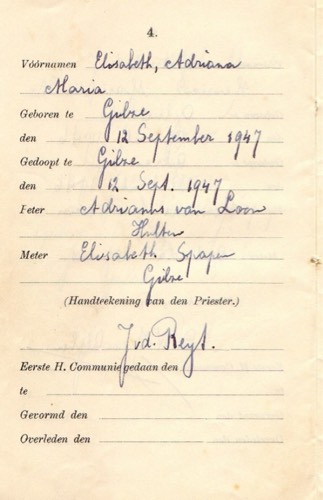 4.
Vóórnamen Elisabeth, Adriana
Maria
Geboren te Gilze
den 12 September 1947
Gedoopt te Gilze
den 12 Sept. 1947
Peter Adrianus van Loon
Hulten
Meter Elisabeth Spapen
Gilze
(Handtrekening van den Priester.)
J.v.d. Reyt.
Eerste H. Communie gedaan den
te
Gevormd den
Overleden den